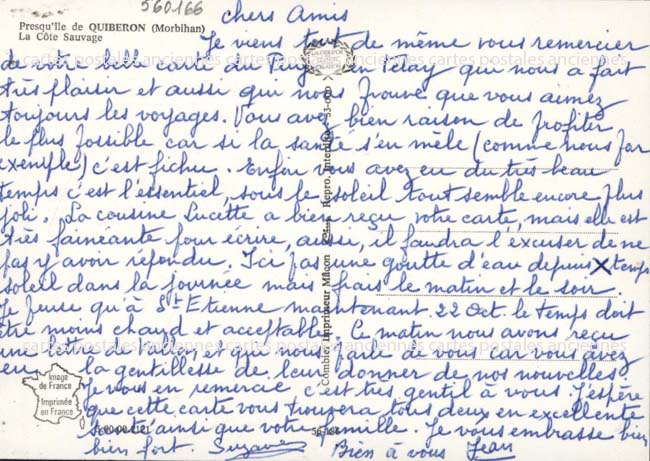 560166
chers Amis
Presqu'Ile de QUIBERON (Morbihan)
La Côte Sauvage
Je viens tout de même vous remercier
de votre belle carte du Puy en Velay qui nous a fait
très plaisir et aussi qui nous prouve que vous aimez
toujours les voyages. Vous avez bien raison de profiter
le plus possible car si la santé s'en mèle (comme nous par
exemple) c'est fichu. Enfin vous avez eu du très beau
temps c'est l'essentiel, sous le soleil tout semble encore plus
joli. La cousine Lucette a bien reçu votre carte, mais elle est
très fainéante pour écrire, aussi, il faudra l'excuser de ne
pas y avoir répondu. Ici pas une goutte d'eau depuis X temps
soleil dans la journée mais frais le matin et le soir.
Je pense qu'à St Etienne maintenant 22 Oct. le temps doit
être moins chaud et acceptable. Ce matin nous avons reçu
une lettre de et qui nous parle de vous car vous avez
eu la gentillesse de leur donner de nos nouvelles
Je vous en remercie c'est très gentil à vous. J'espère
que cette carte vous trouvera tous deux en excellente
santé ainsi que votre famille. Je vous embrasse bien
bien fort. Suzanne Bien à vous Jean
Image
de France
Imprimée
en France
Combier Imprimeur Mâcon
Repro. Interdite
53-000
56-166
cartes postales anciennes cartes postales anciennes cartes postales anciennes